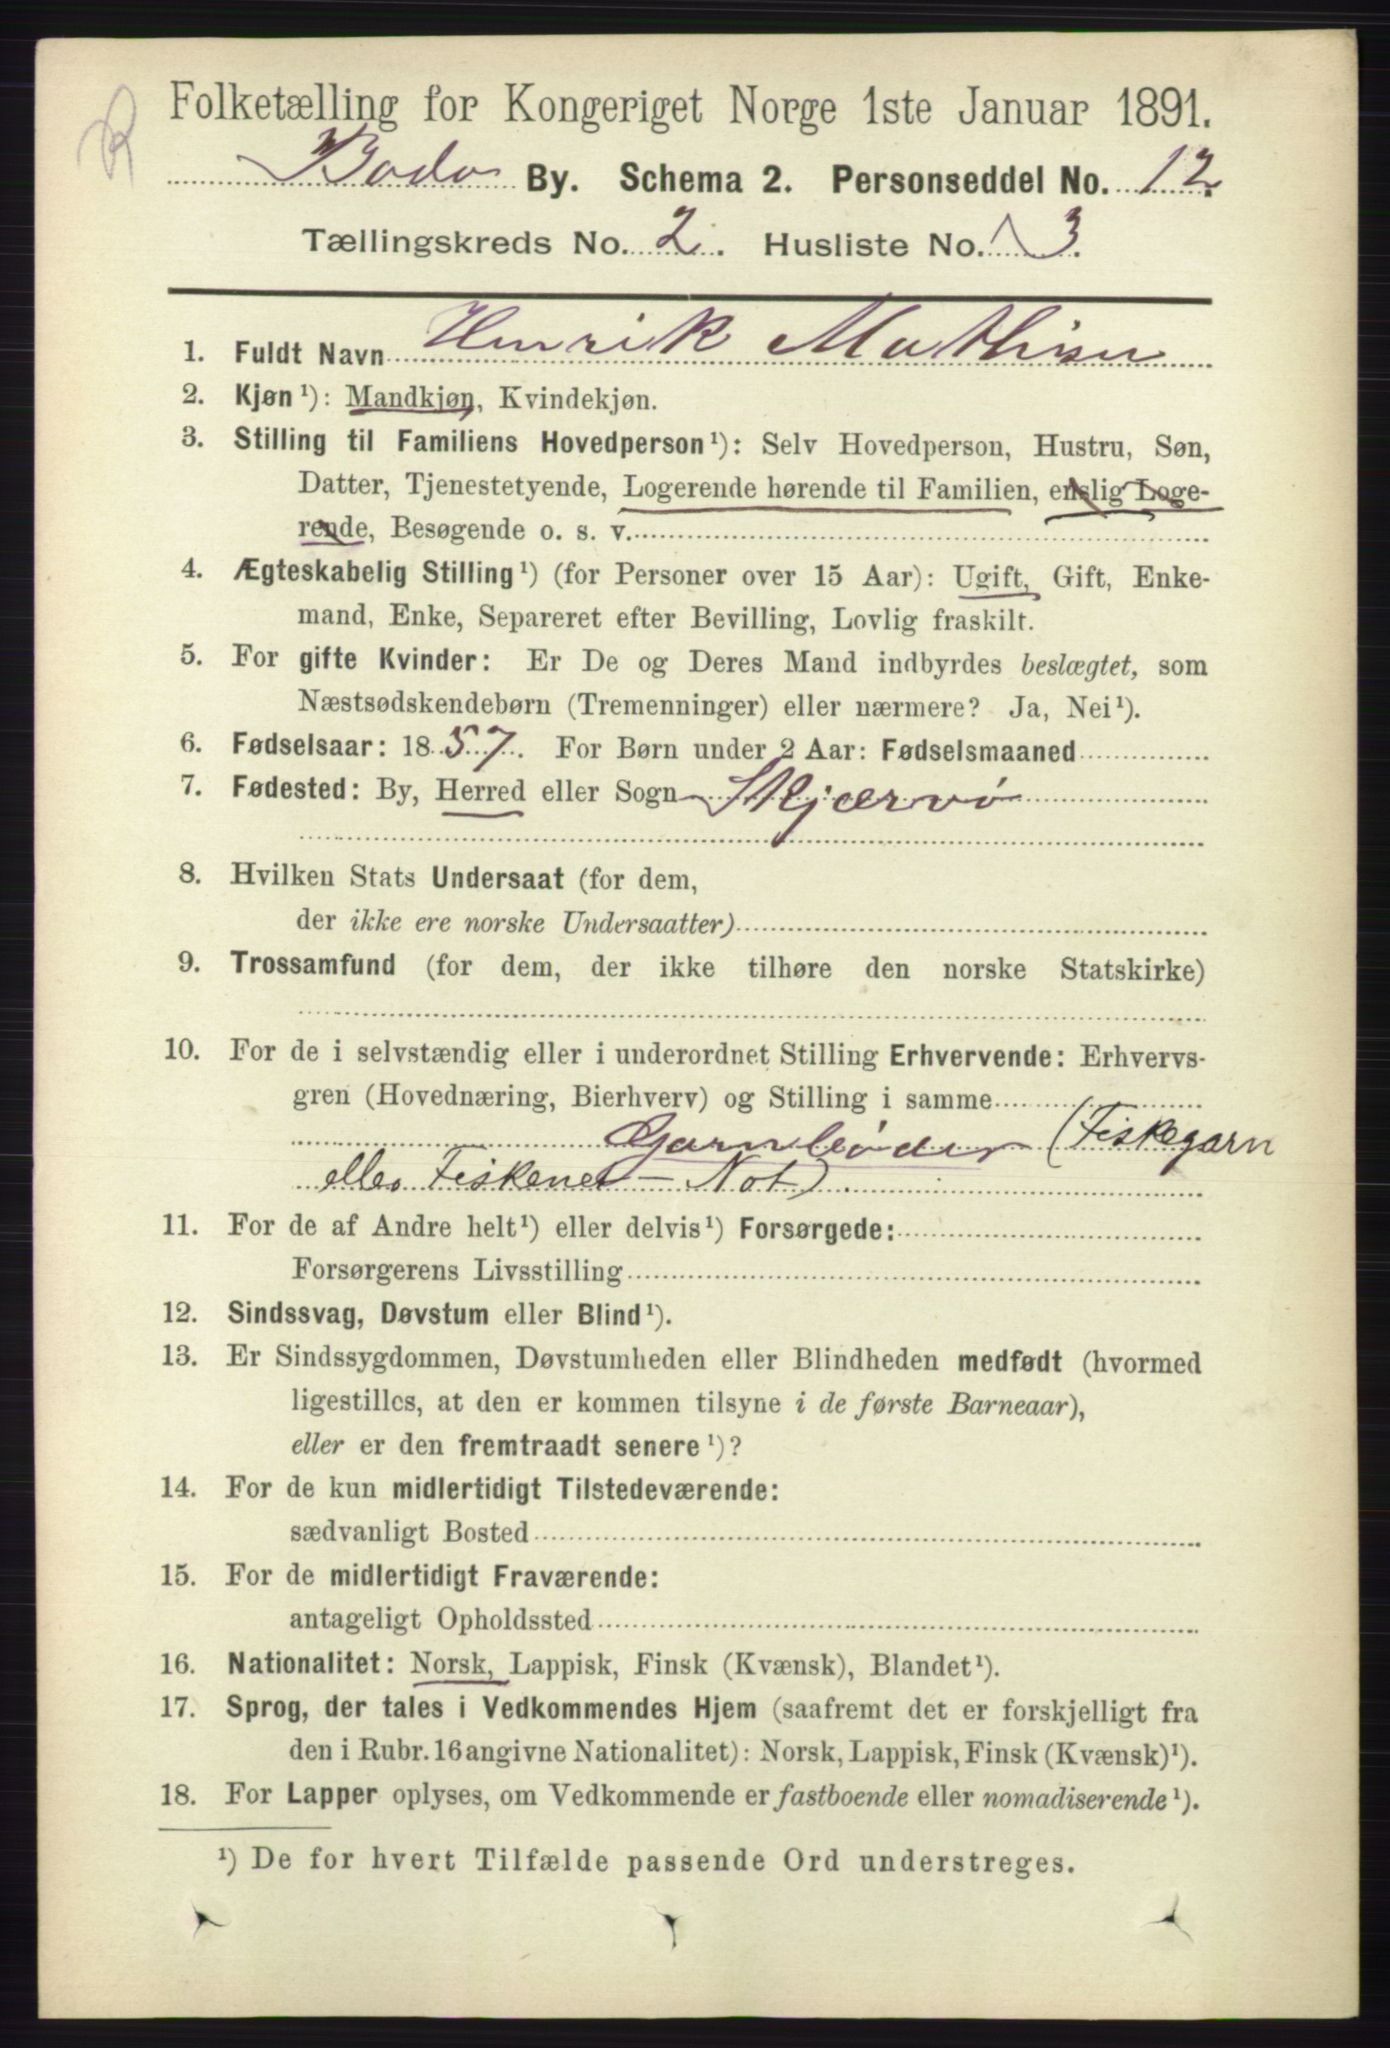 R
Folketælling for Kongeriget Norge 1ste Januar 1891.
Bodø By. Schema 2. Personseddel No. 12.
Tællingskreds No. 2. Husliste No. 3.
1. Fuldt Navn Henrik Mathisen
2. Kjøn¹): Mandkjøn, Kvindekjøn.
3. Stilling til Familiens Hovedperson¹): Selv Hovedperson, Hustru, Søn,
Datter, Tjenestetyende, Logerende hørende til Familien, enslig Loge-
rende, Besøgende o. s. v.
4. Ægteskabelig Stilling¹) (for Personer over 15 Aar): Ugift, Gift, Enke-
mand, Enke, Separeret efter Bevilling, Lovlig fraskilt.
5. For gifte Kvinder: Er De og Deres Mand indbyrdes beslægtet, som
Næstsødskendebørn (Tremenninger) eller nærmere? Ja, Nei¹).
6. Fødselsaar: 1857. For Børn under 2 Aar: Fødselsmaaned
7. Fødested: By, Herred eller Sogn Skjærvø
8. Hvilken Stats Undersaat (for dem,
der ikke ere norske Undersaatter)
9. Trossamfund (for dem, der ikke tilhøre den norske Statskirke)
10. For de i selvstændig eller i underordnet Stilling Erhvervende: Erhvervs-
gren (Hovednæring, Bierhverv) og Stilling i samme
Garnbøder (Fiskegarn
eller Fiskenet – Not).
11. For de af Andre helt¹) eller delvis¹) Forsørgede:
Forsørgerens Livsstilling
12. Sindssvag, Døvstum eller Blind¹).
13. Er Sindssygdommen, Døvstumheden eller Blindheden medfødt (hvormed
ligestilles, at den er kommen tilsyne i de første Barneaar),
eller er den fremtraadt senere¹)?
14. For de kun midlertidigt Tilstedeværende:
sædvanligt Bosted
15. For de midlertidigt Fraværende:
antageligt Opholdssted
16. Nationalitet: Norsk, Lappisk, Finsk (Kvænsk), Blandet¹).
17. Sprog, der tales i Vedkommendes Hjem (saafremt det er forskjelligt fra
den i Rubr. 16 angivne Nationalitet): Norsk, Lappisk, Finsk (Kvænsk)¹).
18. For Lapper oplyses, om Vedkommende er fastboende eller nomadiserende¹).
¹) De for hvert Tilfælde passende Ord understreges.